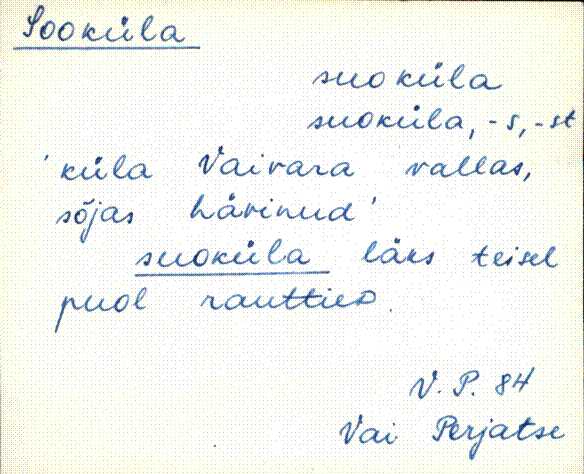 Sooküla
suoküla
suoküla, -s, -st
'küla Vaivara vallas,
sõjas hävinud'
suoküla läks teisel
puol rauttieo
V. P. 84
Vai Perjatse